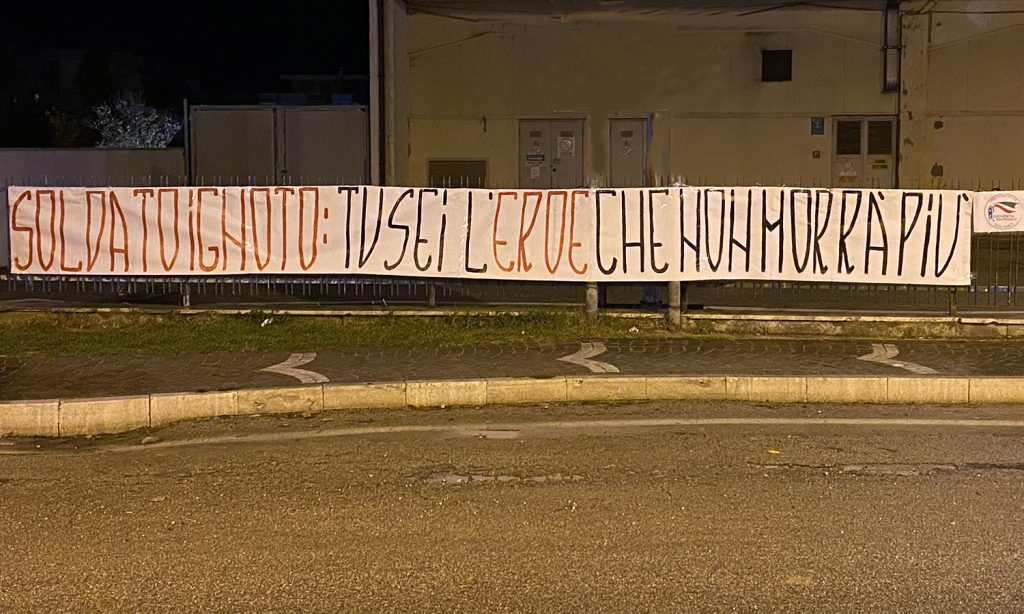 SOLDATO iGNOTO: TU SEi L'EROE CHE NON MORRÀ PiÙ